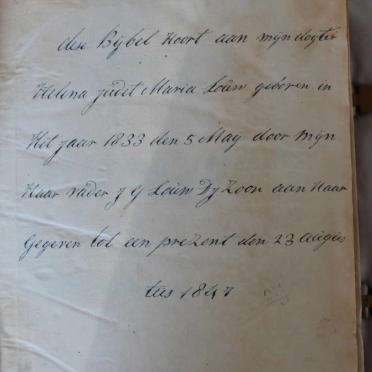 dese Bijbel hoort aan mijn dogter
Helena judit Maria Louw geboren in
Het jaar 1833 den 5 May door mijn
Haar vader J G Louw DJ Zoon aan Haar
Gegeven tot een prezent den 23 augus
tus 1847